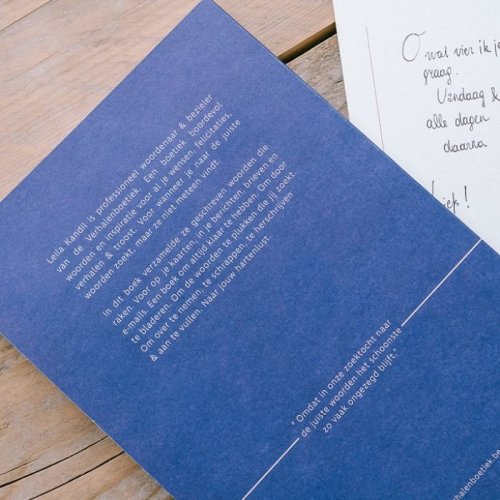 Leïla Kandil is professioneel woordenaar & bezieler
van de Verhalenboetiek. Een boetiek boordevol
woorden en inspiratie voor al je wensen, felicitaties,
verhalen & troost. Voor wanneer je naar de juiste
woorden zoekt, maar ze niet meteen vindt.
In dit boek verzamelde ze geschreven woorden die
raken. Voor op je kaarten, in je berichten, brieven en
e-mails. Een boek om altijd klaar te hebben. Om door
te bladeren. Om de woorden te plukken die jij zoekt.
Om over te nemen, te schrappen, te herschrijven
& aan te vullen. Naar jouw hartenlust.
" Omdat in onze zoektocht naar
de juiste woorden het schoonste
zo vaak ongezegd blijft."
halenboetiek.be
O wat vier ik je
graag.
Vandaag &
alle dagen
daarna